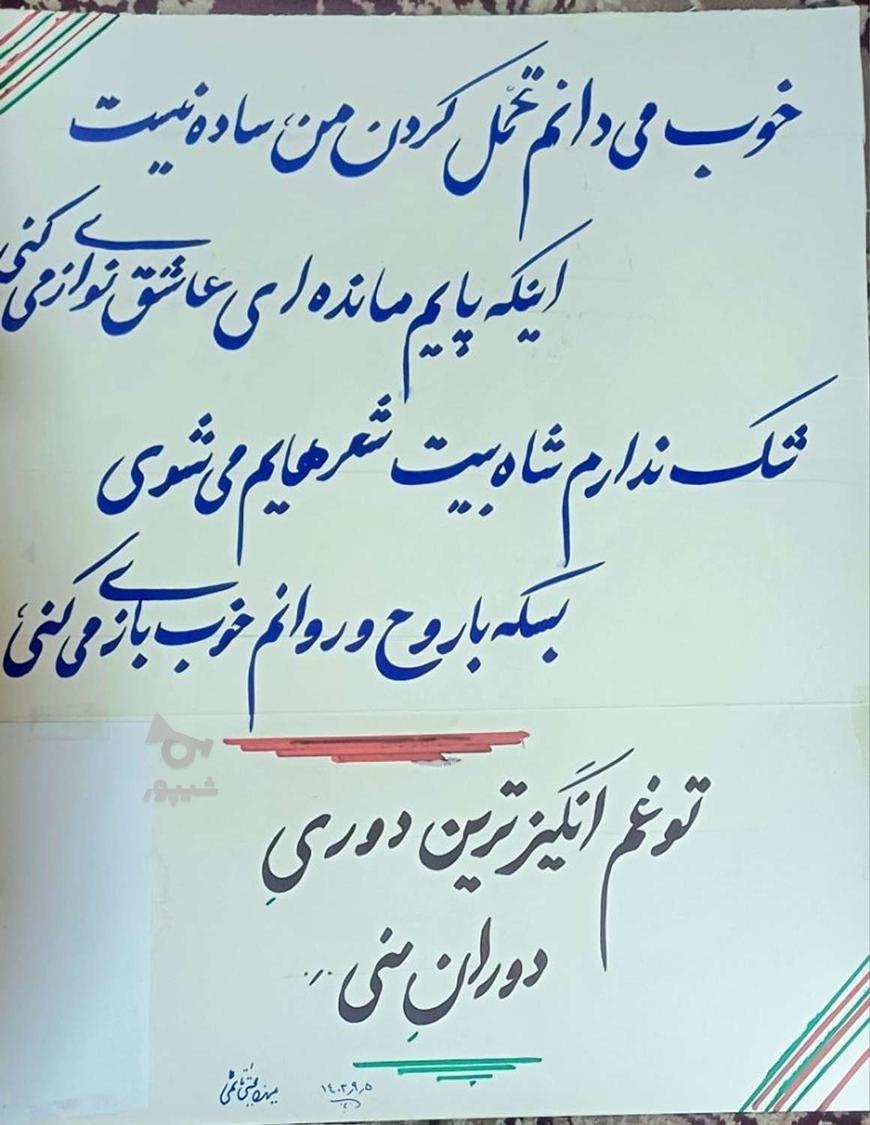 خوب می دانم تحمّل کردن من، ساده نیست
اینکه پایم مانده ای عاشق نوازی می کنی
شک ندارم شاه بیت شعرهایم می شوی
بسکه با روح و روانم خوب بازی می کنی،
شیپور
تو غم انگیزترین دوریِ
دورانِ منی ...
۱۴۰۲٫۹٫۵